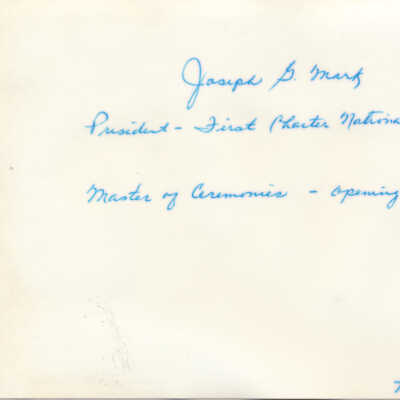 Joseph G. Mark
President - First Charter Nationa
Master of Ceremonies - Opening